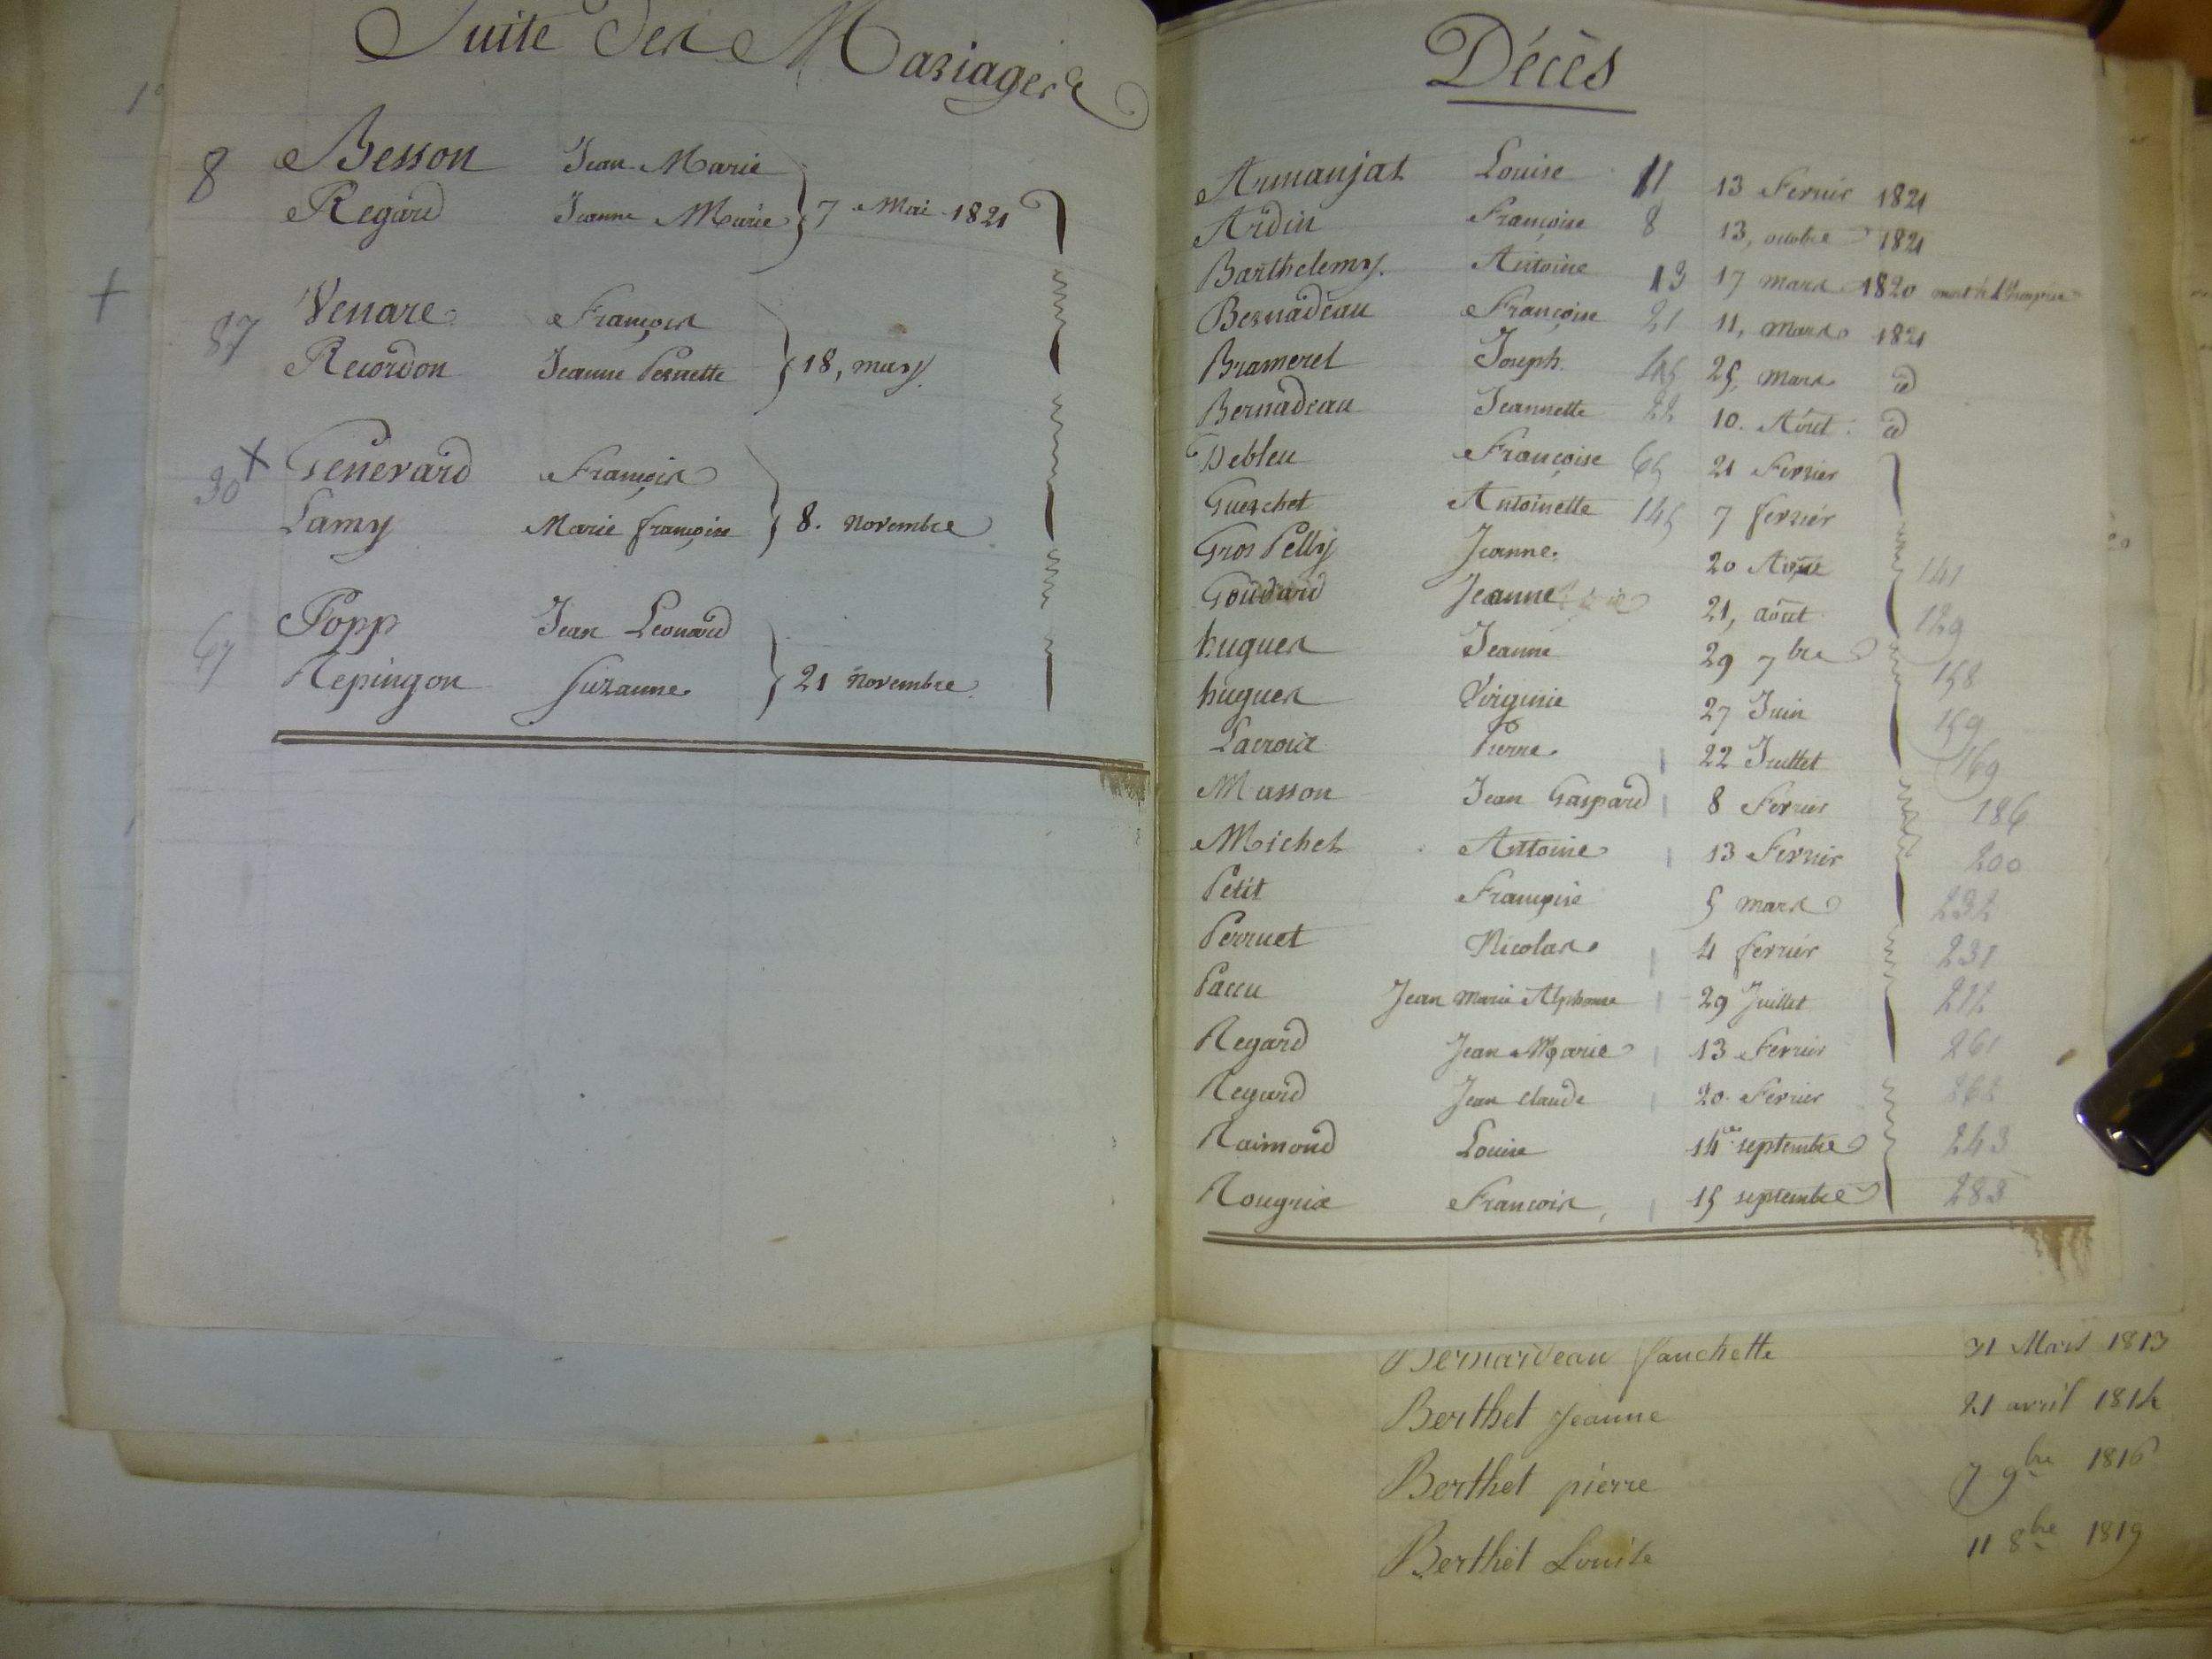 Suite des Mariages
8 Besson Jean Marie
Regard Jeanne Marie 7 Mai 1821
87 Venare François
Recordon Jeanne Pernette 18, mars
30 + Genevard François
Lamy Marie françoise 8. Novembre
67 Popp Jean Leonard
Repingon Suzanne 21 Novembre
Décès
Armanjat Louise 11 13 Fevrier 1821
Ardin Françoise 8 13, octobre 1821
Barthelemy Antoine 13 17 mars 1820
Bernadeau Françoise 21 11, mars 1821
Brameret Joseph 45 25, mars d
Bernadeau Jeannette 22 10. Aout d
Debleu Françoise 65 21 Fevrier
Guerchet Antoinette 145 7 fevrier
Gros Pelly Jeanne 20 141
Goudard Jeanne 21, août 129
hugues Jeanne 29 7bre 158
hugues Virginie 27 Juin 159
Lacroix Pierre 22 Juillet 169
Masson Jean Gaspard 8 Fevrier 186
Michel Antoine 13 Fevrier 200
Petit Françoise 5 mars 232
Perruet Nicolas 4 fevrier 231
Paccu Jean Marie Alphonse 29 Juillet 212
Regard Jean Marie 13 Fevrier 261
Regard Jean Claude 20. Fevrier 262
Raimond Louise 14 septembre 243
Rougrix François 15 septembre 283
Bernardeau fanchette 31 Mars 1813
Berthet Jeanne 21 avril 1814
Berthet pierre 7 9bre 1816
Berthet Louise 11 8bre 1819